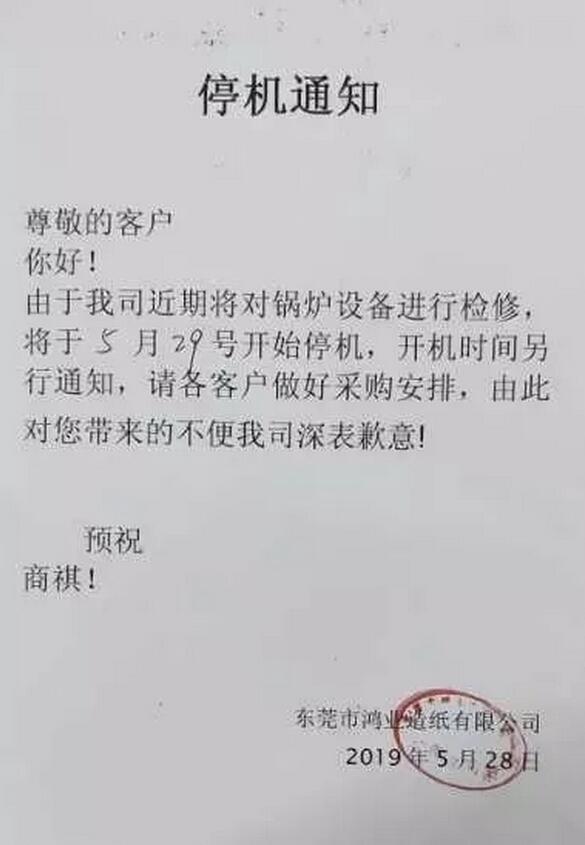 停机通知
尊敬的客户
你好！
由于我司近期将对锅炉设备进行检修，
将于 5 月 29 号开始停机，开机时间另
行通知，请各客户做好采购安排，由此
对您带来的不便我司深表歉意!
预祝
商祺！
东莞市鸿业造纸有限公司
2019 年 5 月 28 日